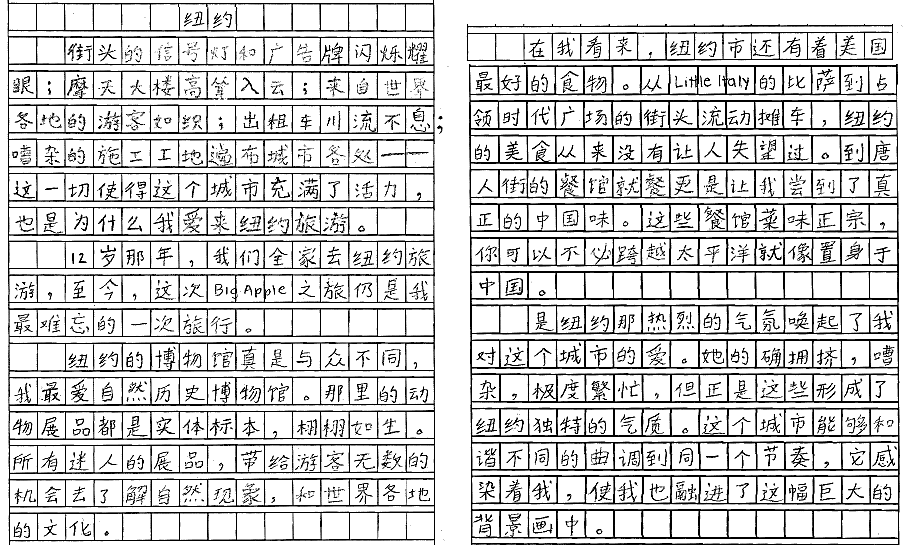 纽约
街头的信号灯和广告牌闪烁耀
眼；摩天大楼高耸入云；来自世界
各地的游客如织；出租车川流不息；
嘈杂的施工工地遍布城市各处——
这一切使得这个城市充满了活力，
也是为什么我爱来纽约旅游。
12岁那年，我们全家去纽约旅
游，至今，这次Big Apple之旅仍是我
最难忘的一次旅行。
纽约的博物馆真是与众不同，
我最爱自然历史博物馆。那里的动
物展品都是实体标本，栩栩如生。
所有迷人的展品，带给游客无数的
机会去了解自然现象，和世界各地
的文化。
在我看来，纽约市还有着美国
最好的食物。从Little Italy的比萨到占
领时代广场的街头流动摊车，纽约
的美食从来没有让人失望过。到唐
人街的餐馆就餐更是让我尝到了真
正的中国味。这些餐馆菜味正宗，
你可以不必跨越太平洋就像置身于
中国。
是纽约那热烈的气氛唤起了我
对这个城市的爱。她的确拥挤，嘈
杂，极度繁忙，但正是这些形成了
纽约独特的气质。这个城市能够和
谐不同的曲调到同一个节奏，它感
染着我，使我也融进了这幅巨大的
背景画中。